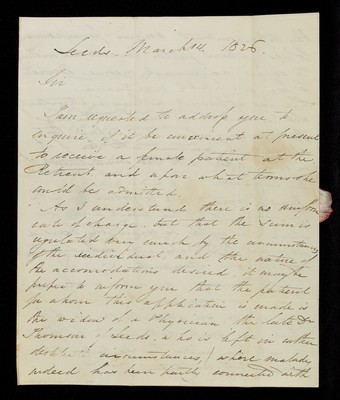 Leeds March 14. 1828.
Sir
I am requested to address you to
enquire, if it be convenient at present
to receive a female patient at the
Retreat, and upon what terms she
could be admitted.
As I understand there is no uniform
rate of charge, but that the sum is
regulated very much by the circumstances
of the individual and the nature of
the accommodations desired it may be
proper to inform you that the patient
for whom this application is made is
the widow of a Physician the late Dr
Thomson of Leeds, who is left in rather
circumstances, whose malady
indeed has been partly connected with